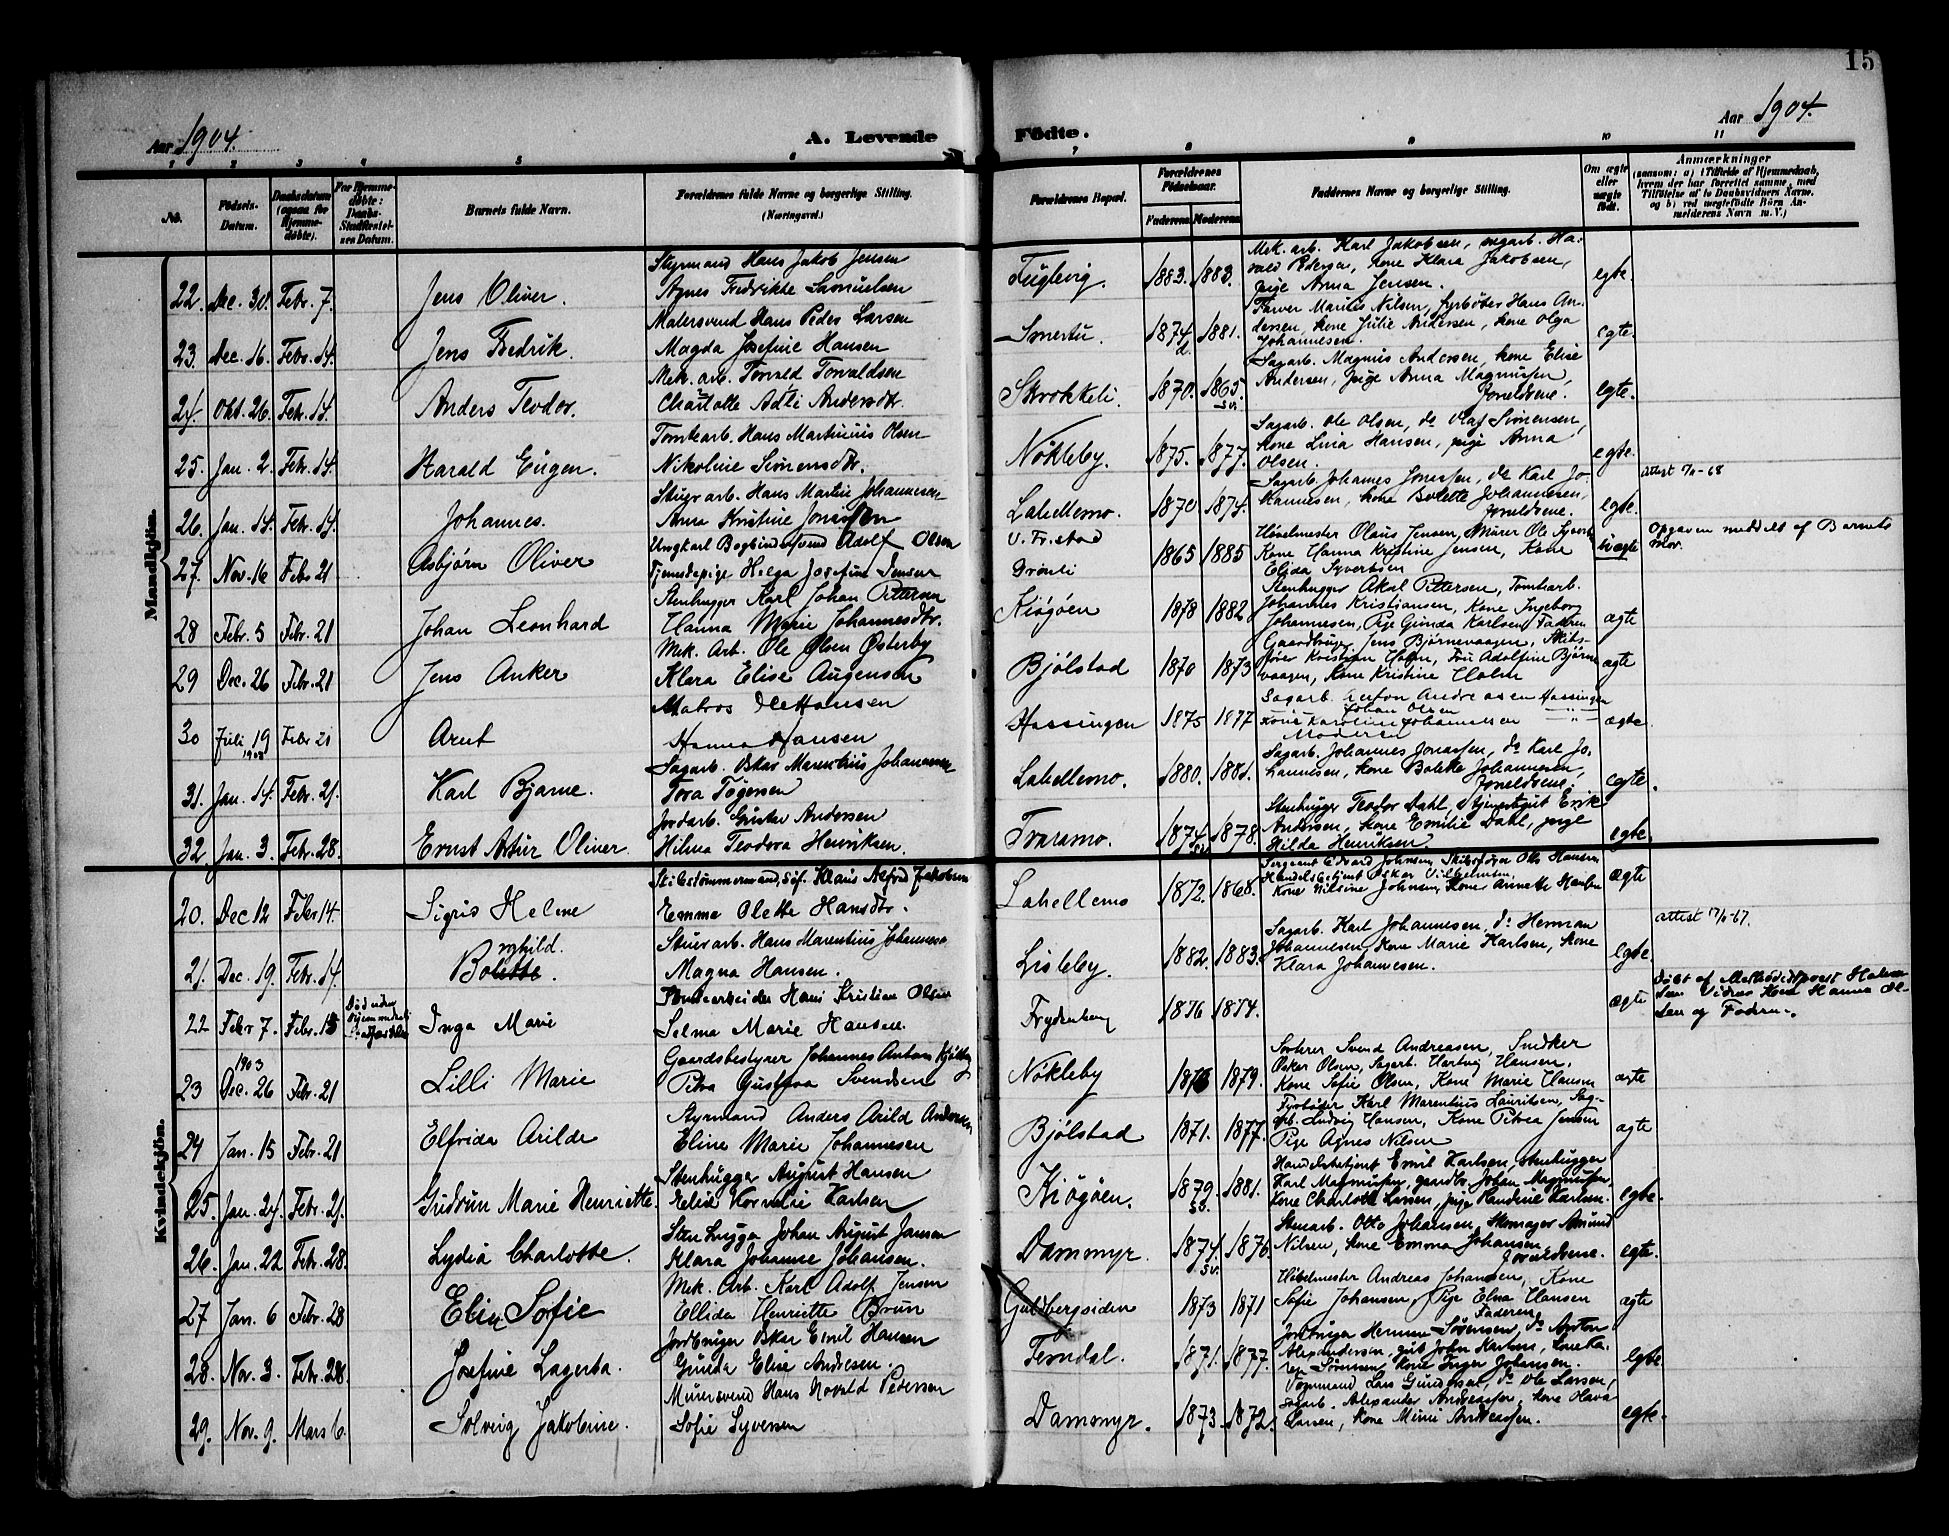 15
Aar 1904.
A. Levende Fødte.
Aar 1904.
1 2 3 4 5 6 7 8 9 10 11
No.
Fødsels-Datum.
Daabsdatum (ogsaa for Hjemmedøbte).
For Hjemmedøbte: Daabs-Stadfæstelsens Datum.
Barnets fulde Navn.
Forældrenes fulde Navne og borgerlige Stilling.
(Næringsvei.)
Forældrenes Bopæl.
Forældrenes Fødselsaar.
Faderens. Moderens.
Faddernes Navne og borgerlige Stilling.
Om ægte eller uægte født.
Anmærkninger
(saasom: a) i Tilfælde af Hjemmedaab, hvem der har forrettet samme, med Tilføielse af to Daabsvidners Navne, og b) ved uægtefødte Børn Anmelderens Navn m. V.)
Mandkjøn.
22. Dec. 30. Febr. 7. Jens Oliver.
Styrmand Hans Jakob Jensen
Agnes Fredrikke Samuelsen
Fuglevig. 1883. 1883.
Mek. arb. Karl Jakobsen, sagarb. Ha-
vald Pedersen, kone Klara Jakobsen,
pige Anna Jensen.
egte.
23. Dec. 16. Febr. 14. Jens Fredrik.
Malersvend Hans Peder Larsen
Magda Josefine Hansen
Smertu. 1874. 1881.
Farver Marius Nilsen, fyrbøter Hans An-
dersen, kone Julie Andersen, kone Olga
Johannesen.
egte.
24. Okt. 26. Febr. 14. Anders Teodor.
Mek. arb. Torvald Torvaldsen
Charlotte Adli Andersdtr.
Skrokkeli. 1870. 1865.
Sagarb. Magnus Andersen, kone Elise
Andersen, pige Anna Magnussen,
Foreldrene.
egte.
25. Jan. 2. Febr. 14. Harald Eugen.
Tomtearb. Hans Martinius Olsen
Nikoline Simensdtr.
Nøkleby. 1875. 1877.
Sagarb. Ole Olsen, do Olaf Simensen,
kone Lina Hansen, pige Anna
Olsen.
egte.
26. Jan. 14. Febr. 14. Johannes.
Stuerarb. Hans Martin Johannesen
Anna Kristine Jonassen
Lahellemo. 1870 1874.
Sagarb. Johannes Jonassen, do Karl Jo-
hannesen, kone Bolette Johannesen,
Foreldrene.
egte.
attest -68
27. Nov. 16 Febr 21 Asbjørn Oliver
Ungkarl Bogbindersvend Adolf Olsen
Tjenestepige Helga Josefine Jensen
V. Fr.stad
Grønli
1865 1885
Høvelmester Olaus Jensen, Murer Ole Syverts
Kone Hanna Kristine Jensen, Kone
Elida Syvertsen
uægte
Opgaven meddelt af Barnets
Mor.
28 Febr. 5 Febr. 21 Johan Leonhard
Stenhugger Karl Johan Pettersen
Hanna Marie Johannesdtr.
Kiøgøen 1878 1882
Stenhugger Aksel Pettersen, Tomtearb.
Johannes Kristiansen, Kone Ingeborg
Johannesen, Pige Gunda Karlsen, Fadren
ægte
29 Dec. 26 Febr. 21 Jens Anker
Mek. Arb. Ole Olsen Østerby
Klara Elise Augensen
Bjølstad 1870 1873
Gaardbruger Jens Bjørnevaagen, Skibs-
fører Kristian Holm, Fru Adolfine Bjørne
vaagen, Kone Kristine Holm
ægte
30 Juli 19 1903 Febr 21 Arnt
Matros Ole Hansen
Hanna Hansen
Hassingen 1875 1877
Sagarb. Anton Andreasen Hassingen
Johan Olsen
Kone Karoline Johannesen —"—
Moderen
ægte.
31. Jan. 14. Febr. 21. Karl Bjarne.
Sagarb. Oskar Marentius Johannesen
Tora Tøgersen
Lahellemo. 1880. 1881.
Sagarb. Johannes Jonassen, do Karl Jo-
hannesen, kone Bolette Johannesen,
Foreldrene.
egte.
32. Jan. 3. Febr. 28. Ernst Artur Oliver.
Jordarb. Gustav Andersen
Hilma Teodora Henriksen.
Traramo. 1874 1878.
Stenhugger Teodor Dahl, stjernegut Erik
Andersen, kone Emilie Dahl, pige
Hilda Henriksen.
egte.
Kvindekjøn.
20. Dec 12 Febr 14. Sigrid Helene
Skibstømmermand, søf. Klaus Alfred Jakobsen
Emma Olette Hansdtr.
Lahellemo 1872. 1868.
Sergeant Edvard Johansen, Skibsfører Otto Hansen
Handelsbetjent Oskar Vilhelmsen,
Kone Nilsine Johnsen, Kone Annette Hansen
ægte
attest -67.
21. Dec. 19. Febr. 14 Borghild. Bolette.
Stuerarb. Hans Marentius Johannesen
Magna Hansen.
Lisleby. 1882. 1883.
Sagarb. Karl Johannesen, do Herman
Johannesen, Kone Marie Karlsen, kone
Klara Johannesen.
egte.
22 Febr 7. Febr. 15 Inga Marie
Død uden
Hjemmedaabs
Stadfæstelse
Tomtearbeider Hans Kristian Olsen
Selma Marie Hansen.
Frydenberg 1876 1874.
ægte
Døbt af Methodistprest Halvor-
sen Vidner Kone Hanna Ol-
sen og Fadern.
23 1903 Dec. 26 Febr. 21 Lilli Marie
Gaardsbestyrer Johannes Antons Kjølby
Petra Gustava Svendsen
Nøkleby 1876 1879.
Sorterer Svend Andreasen, Snedker
Oskar Olsen, Sagarb. Hartvig Hansen,
Kone Sofie Olsen, Kone Marie Hansen
ægte
24 Jan. 15 Febr. 21 Elfrida Arilde
Styrmand Anders Arild Andersen
Eline Marie Johannesen
Bjølstad 1871. 1877.
Fyrbøder Karl Marentius Lauritsen, Sag-
arb. Ludvig Hansen, Kone Petrea Jensen
Pige Agnes Nilsen
ægte
25. Jan. 24. Febr. 21. Gudrun Marie Henriette.
Stenhugger August Hansen
Elise Kornelie Karlsen
Kiøgøen. 1879. 1881.
Handelsbetjent Emil Karlsen, stenhugger
Karl Magnussen, gaardbr. Johan Magnussen,
kone Charlotte Larsen, pige Randine Karlsen.
egte.
26. Jan. 22 Febr. 28. Lydia Charlotte.
Stenhugger Johan August Jansen
Klara Johanne Johansen.
Dammyr. 1874. 1876.
Stenarb. Otto Johansen, Skomager Amund
Nilsen, kone Emma Johansen
Foreldrene.
egte.
27 Jan. 6 Febr. 28 Elise Sofie
Mek. Arb. Karl Adolf Jensen
Ellida Henriette Brun
Guldbergsiden 1873 1871
Høvelmester Andreas Johansen, Kone
Sofie Johansen, Pige Elna Hansen
Faderen
ægte
28. Nov. 3. Febr. 28. Josefine Lagerta.
Jordbruger Oskar Emil Hansen
Gunda Elise Andresen.
Ferndal. 1871. 1877.
Jordbruger Herman Sørensen, do Anton
Alexandersen, gut John Karlsen, kone Ka-
ren Sørensen, kone Inger Johansen.
egte
29. Nov. 9. Mars 6. Solveig Jakobine.
Murersvend Hans Hovald Pedersen
Sofie Syversen
Dammyr. 1873. 1872.
Vognmand Lars Gundersen, do Ole Larsen,
sagarb. Alexander Andreassen, kone Olava
Larsen, kone Minni Andreassen.
egte.